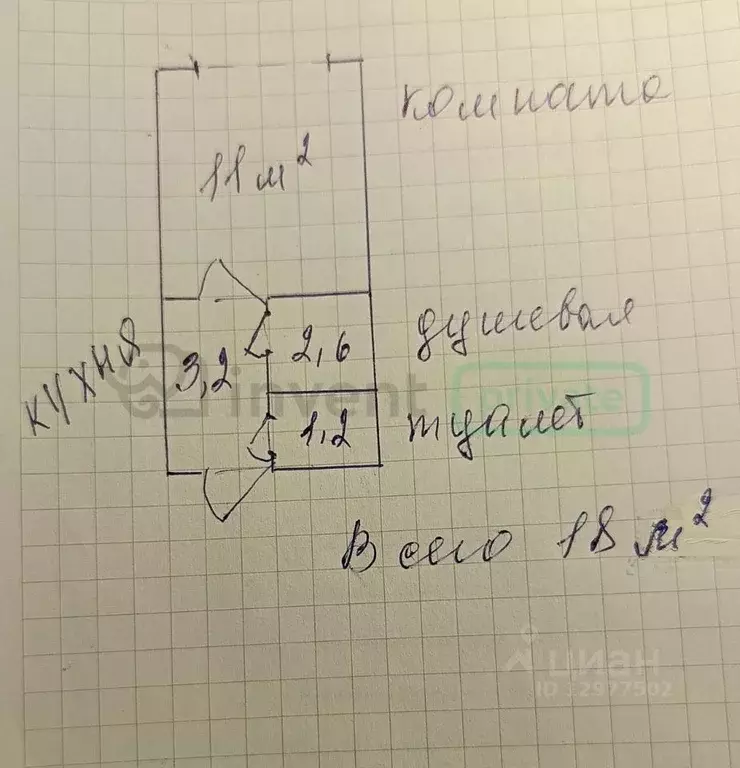 комната
11 м²
душевая
кухня
3,2
2,6
invent private
1,2
туалет
Всего 18 м²
циан
ID 32977502